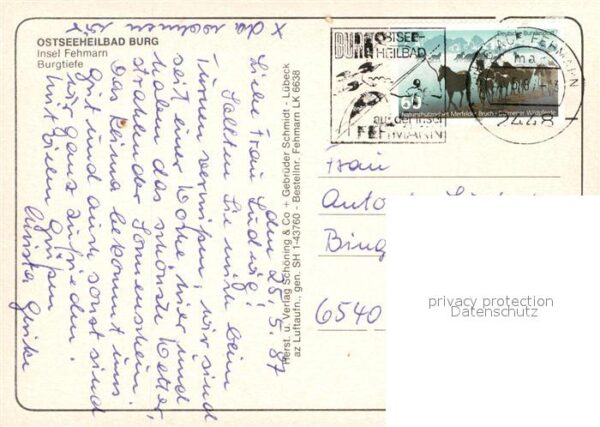 OSTSEEHEILBAD BURG
Insel Fehmarn
Burgtiefe
x da wohnen
den 25. 5. 87
Liebe Frau Ludwig!
Sollten Sie mich beim
Turnen vermissen, wir sind
seit einer Woche hier und
haben das schönste Wetter,
strahlender Sonnenschein.
Das Klima bekommt uns
gut und auch sonst sind
wir ganz zufrieden.
Mit vielen Grüßen
Herst. u. Verlag Schöning & Co + Gebrüder Schmidt - Lübeck
az Luftaufn., gen. SH 1-43760 - Bestellnr. Fehmarn LK 6638
BURG OSTSEE-
HEILBAD
auf der Insel
FEHMARN
Deutsche Bundespost
60
Naturschutzgebiet Merfelder Bruch - Dülmener Wildpferde
FEHMARN
ma
2448
Frau
Bing
6540
privacy protection
Datenschutz